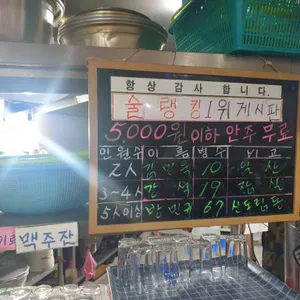 항상 감사 합니다.
술 랭킹 1위 게시판
5000원 이하 안주 무료
인원수 이름 병수 비고
2人 김민욱 10 일산
3~4人 간석 19 잠실
5人이상 박민규 67 신도림동
맥주잔